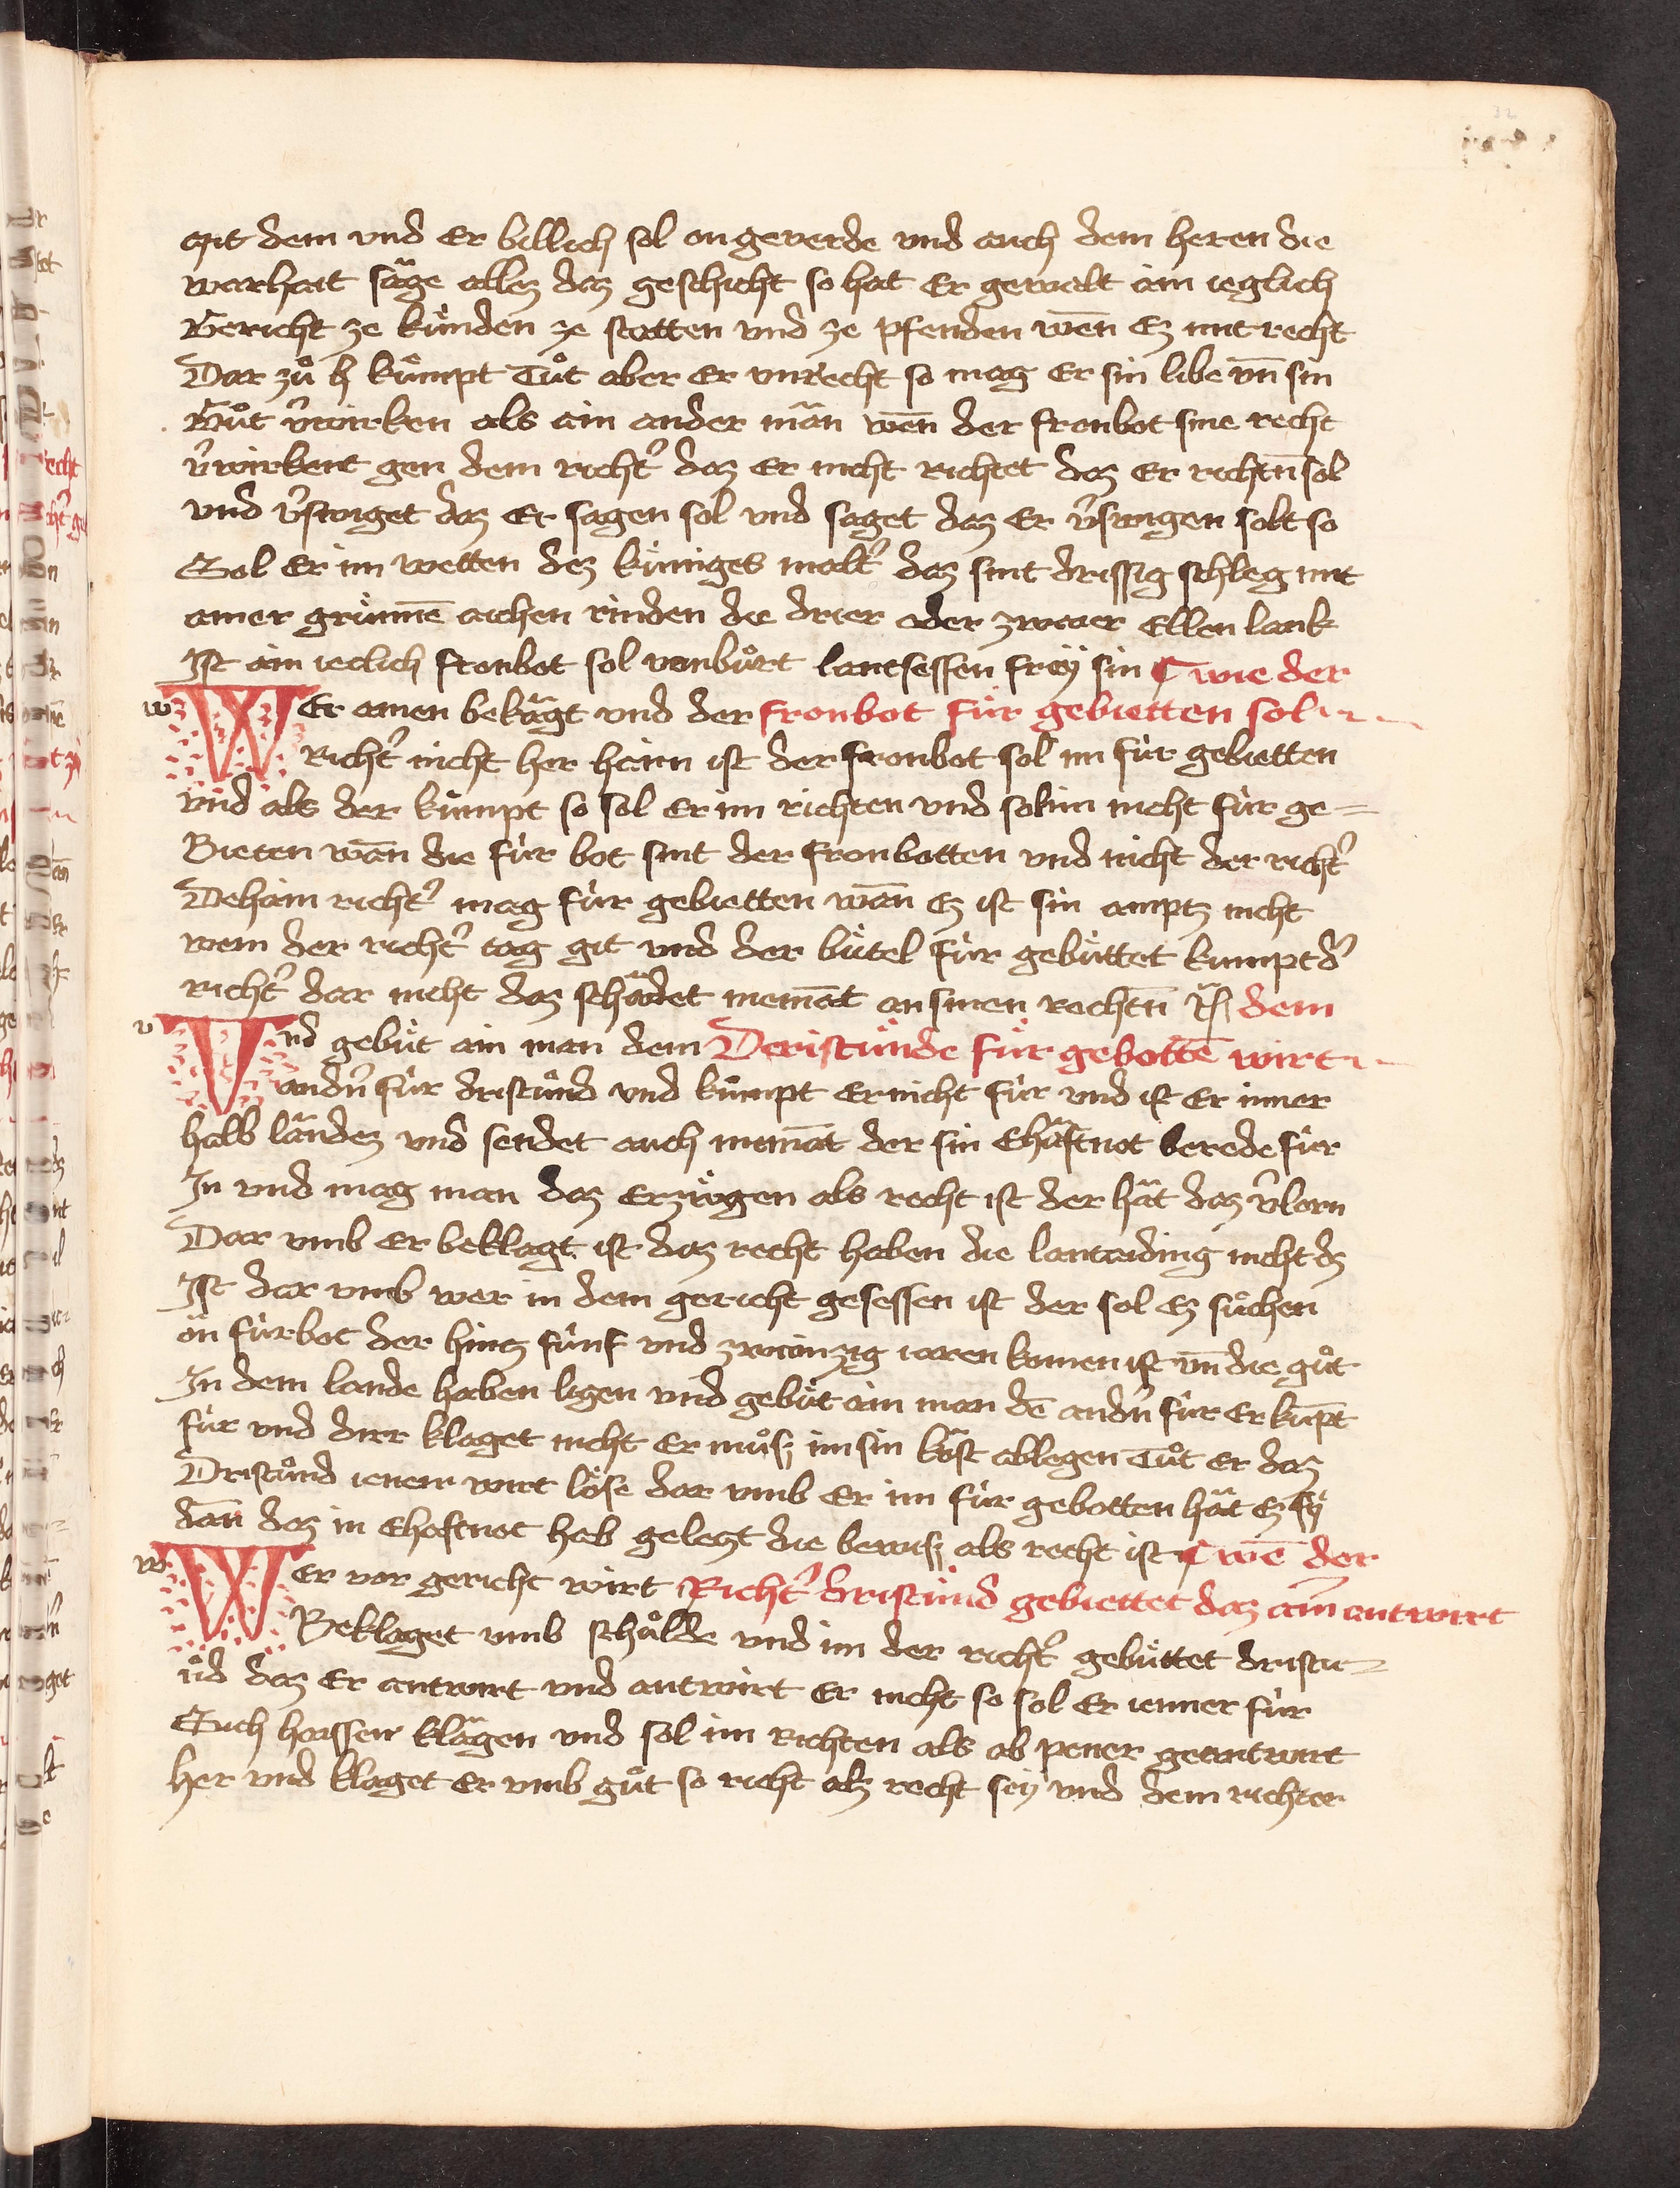 mit dem vnd Er billich sol on geverde vnd auch dem heren die
warhait säge allez daz geschicht so hat Er gewalt ain ieglich
Gericht ze künden ze statten vnd ze pfenden wen̄ Ez mit recht
Dar zů h kümpt Tůt aber er vnrecht so mag Er sin libe vn̄ sin
Gůt v̉wirken als ain ander man̄ wen̄ der fronbot sine recht
v̉wirkent gen dem richt̉ daz er nicht richtet daz Er richtn̄ sol
vnd v̉swiget daz Er sagen sol vnd saget daz Er v̉swigen solt so
Sol Er im wetten dez küniges malt̉ daz sint drissig schleg mit
ainer grünnē aichen rinden die drier oder zwaier Ellen lank
Ist ain ieclich fronbot sol vonbürt lantsessen frÿ sin ¶ wie der
w WEr ainen bekägt vnd der fronbot für gebietten sol
Richt̉ nicht her hain ist der fronbot sol im für gebietten
vnd als der kümpt so sol Er im richten vnd sol im nicht für ge=
Bieten wan̄ die für bot sint der fronbotten vnd nicht der richt̉
Dehain richt̉ mag für gebietten wan̄ Ez ist sin amptz nicht
wem der richt̉ tag git vnd der bütel für gebüttet kumpt d̉
richt̉ dar nicht daz schädet niemāt an sinen rechtn̄ dem
v Vnd gebüt ain man dem Deristünde für gebottē wirt
andn̉ für dristünd vnd kümpt Er nicht für vnd ist Er inner
halb ländez vnd sendet auch niemāt der sin Ehäftnot berede für
In vnd mag man daz Erzügen als recht ist der hät daz v̉lorn
Dar vmb Er beklagt ist daz recht haben die lantaiding nicht dz
Ist dar vmb wer in dem gericht gesessen ist der sol Ez sůchen
ön fürbot der hintz fünf vnd zwainzig iaren komen ist vn̄ die gůt
In dem lande haben ligen vnd gebüt ain man dē andn̉ für Er kūpt
für vnd dirr klaget nicht Er můsz im sin köst ablegen Tůt Er daz
Dristünd ienem wirt löse dar vmb Er im für gebotten hät Ez sÿ
dan̄ daz in Ehaftnot hab geletzt die bewisz als recht ist ¶ wē der
w WEr vor gericht wirt Richt̉ dristünd gebiettet daz ain̄ antwirt
Beklaget vmb schülde vnd im der richt̉ gebüttet dristu=
üd daz Er antwirt vnd antwirt Er nicht so sol Er ienner für
Sich haissen klägen vnd sol im Richten als ob yener geantwirt
her vnd klaget Er vmb gůt so richt alz recht seÿ vnd dem richter